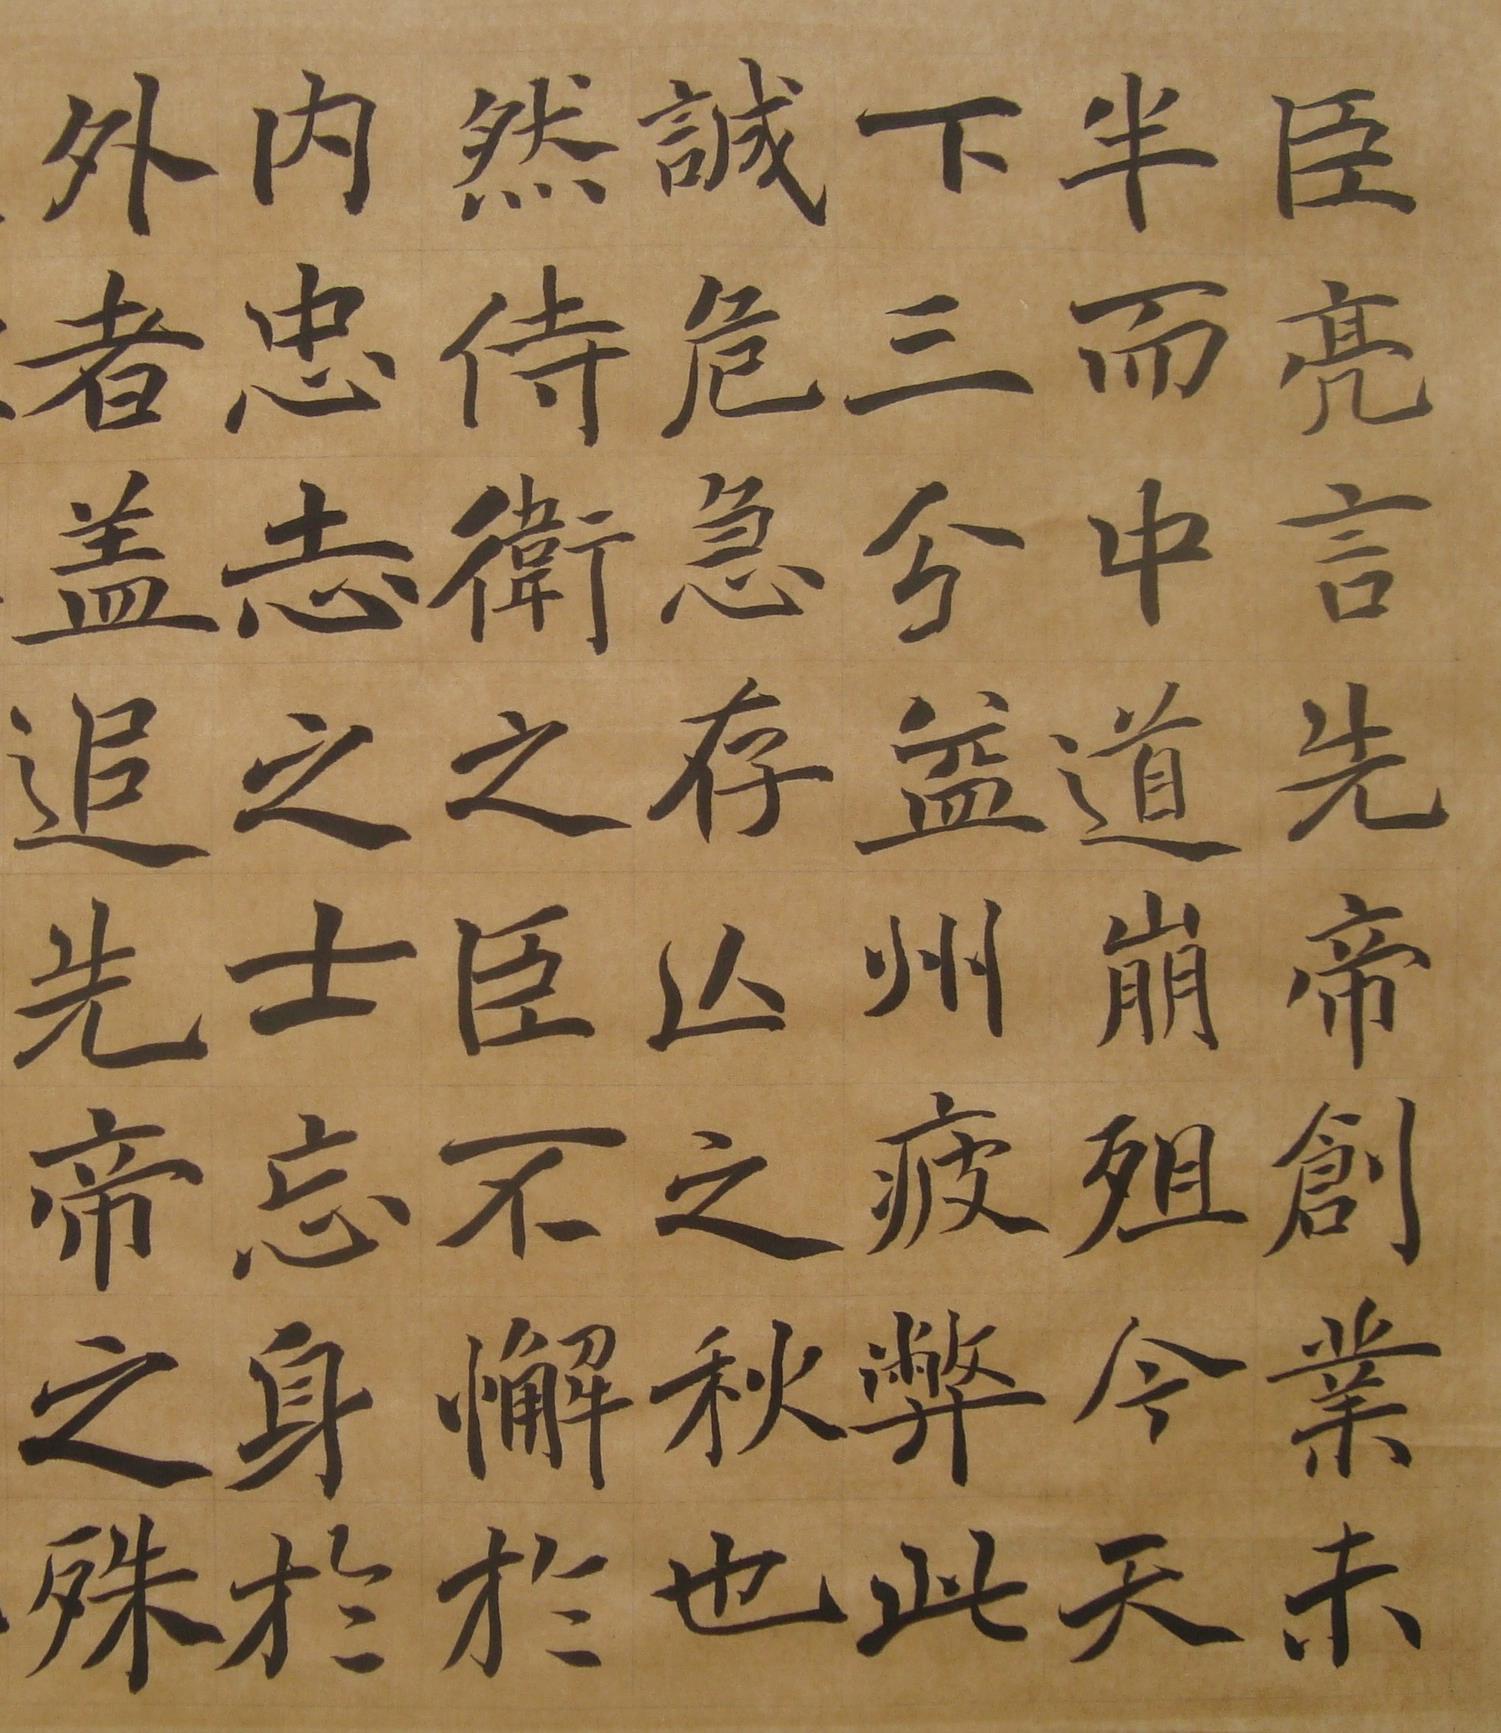 臣亮言先帝創業未
半而中道崩殂今天
下三分益州疲弊此
誠危急存亡之秋也
然侍衛之臣不懈於
内忠志之士忘身於
外者盖追先帝之殊